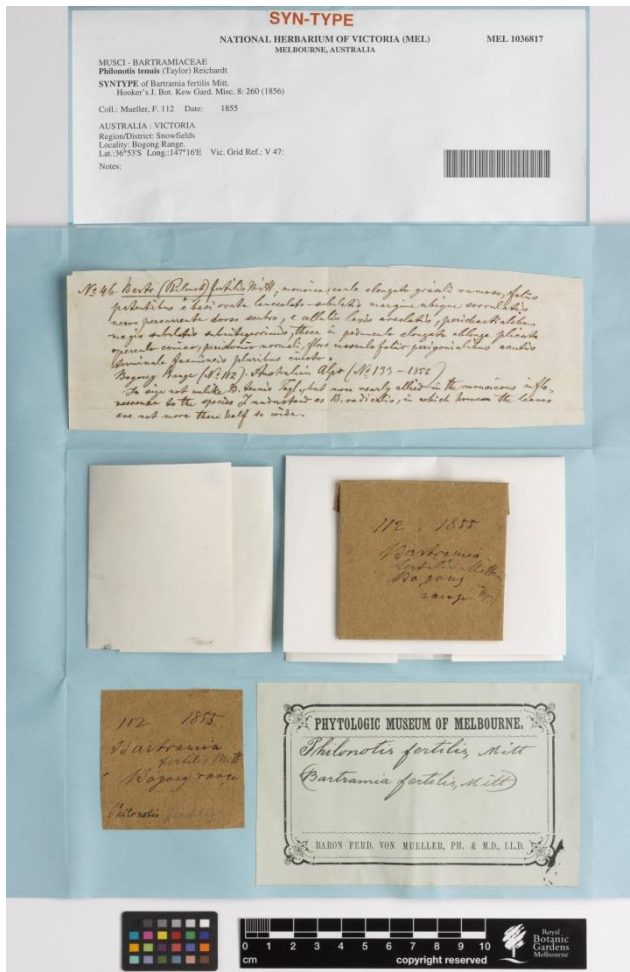 SYN-TYPE
NATIONAL HERBARIUM OF VICTORIA (MEL) MEL 1036817
MELBOURNE, AUSTRALIA
MUSCI - BARTRAMIACEAE
Philonotis tenuis (Taylor) Reichardt
SYNTYPE of Bartramia fertilis Mitt.
Hooker's J. Bot. Kew Gard. Misc. 8: 260 (1856)
Coll.: Mueller, F. 112 Date: 1855
AUSTRALIA : VICTORIA
Region/District: Snowfields
Locality: Bogong Range.
Lat.:36°53'S Long.:147°16'E Vic. Grid Ref.: V 47:
Notes:
No 46. Bartr. fertilis Mitt, monoica, caule elongato gracili ramoso, foliis
patentibus e basi ovata lanceolato-subulatis margine ubique serrulatis
nervo percurrente dorso scabro, e cellulis laxis areolatis, perichaetialibus
magis subulatis subintegerrimis, theca in pedunculo elongato oblonga plicata
operculo conico, peristomio normali, flore masculo foliis perigonialibus acutis
terminale innovationibus pluribus cincto.
Bogong Range (No 112). Australian Alps (No 133 - 1855)
In size not unlike B. tenuis Tayl., but more nearly allied in the monoicous inflo-
rescence to the species I understand as B. radicalis, in which however the leaves
are not more than half so wide.
112 . 1855
Bartramia
fertilis Mitt
Bogong
range
112 1855
Bartramia
fertilis Mitt
Bogong range
Philonotis fertilis
PHYTOLOGIC MUSEUM OF MELBOURNE.
Philonotis fertilis, Mitt
(Bartramia fertilis, Mitt)
BARON FERD. VON MUELLER, PH. & M.D., LL.D.
0 1 2 3 4 5 6 7 8 9 10
cm copyright reserved
Royal
Botanic
Gardens
Melbourne